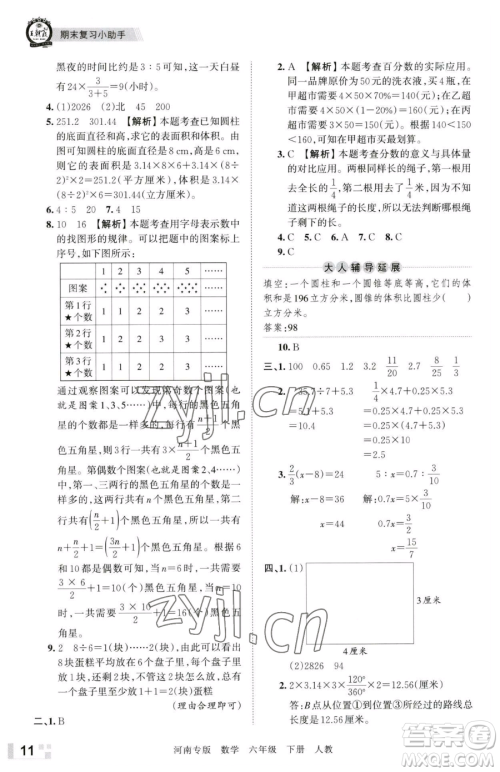 王朝霞
期末复习小助手
黑夜的时间比约是3∶5可以得出,黑夜有
24×5/(3+5)=9(小时)。
4. (1)2026 (2)北 45 200
5. 251.2 301.44 【解析】本题考查已知圆柱
的底面直径和高,求它的表面积和体积。由
图可知圆柱的底面直径是8 cm,高是6 cm,
则它的表面积是3.14×8×6+3.14×(8÷
2)²×2=251.2(平方厘米),体积是3.14×
(8÷2)²×6=301.44(立方厘米)。
6. 4∶5 20 7. 4 15
8. 10 16 【解析】本题考查用字母表示数中
的找图形的规律。可将题中的图案标上
序号,如下图所示:
1 2 3 4 5 ……
图案 ……
第1行★个数 1 1 2 2 3 ……
第2行★个数 1 2 2 3 3 ……
第3行★个数 1 1 2 2 3 ……
通过观察图案可以发现第奇数个图案
(图案1,3,5……)中,每行的黑色五角
星个数是一样多的,每行有(n+1)/2个黑色
五角星,一共有(n+1)/2×3=3(n+1)/2个黑色五
角星。第偶数个图案(图案2,4,6……)
中,第一、三行的黑色五角星个数是一
样多的,有n/2个黑色五角星,第二行有
(n/2+1)个黑色五角星,一共有n/2×2+
n/2+1=(3n/2+1)个黑色五角星。当n=
6时,6是偶数,所以当n=6时,一共有
(3×6)/2+1=10(个)黑色五角星。
9. 2 8÷6=1(块)……2(块) 1+1=2(块)
8块蛋糕平均放在6个盘子里,每个盘
子里放1块,还剩2块,剩下的2块无论
怎么放,总有一个盘子里至少放
1+1=2(块)蛋糕
(理由合理即可)
二、1. B
2. A 【解析】本题考查百分数的实际应用。
同样规格、单价是50元的洗衣液,买4瓶,在
甲超市需要4×50×70%=140(元),在乙超
市需要4×50×80%=160(元),在丙超市
需要3×50=150(元)。因为140<150
<160,所以可知在甲超市买最划算。
3. C 【解析】本题考查分数的意义与具体量
的对比应用。两根同样长的绳子,第一根
用去1/4米,第二根用去1/4,因为不清楚这
两根绳子的长度,所以无法判断哪根绳
子剩下的长。
4. C 5. C 6. A 7. C 8. A
9. C
大人辅导延展
填空:一个圆柱和一个圆锥等底等高,它们的体积
和是196立方分米,圆锥的体积比圆柱少( )
立方分米。
答案:98
10. B
三、1. 100 0.65 1.2 3.2 11/20 8/7 8/25 1/3
2. 35.7÷7+5.3 1/4×4.7+0.25×5.3
=5.1+5.3 =0.25×4.7+0.25×5.3
=10.4 =0.25×(4.7+5.3)
=0.25×10
=2.5
3. 2/3(x-8)=24 5∶x=5/7∶3/10
解:x-8=36 解:5/7x=5×3/10
x=44 x=15/7
四、1. (1)
3厘米
4厘米
(2)2826 94
2. 2×3.14×120°/360°×2=12.56(厘米)
答:B点从开始到结束所经过的路线总
长度是12.56厘米。
zyjl.cn
11
河南专版 数学 六年级 下册 人教
答案圈
MXQE.COM